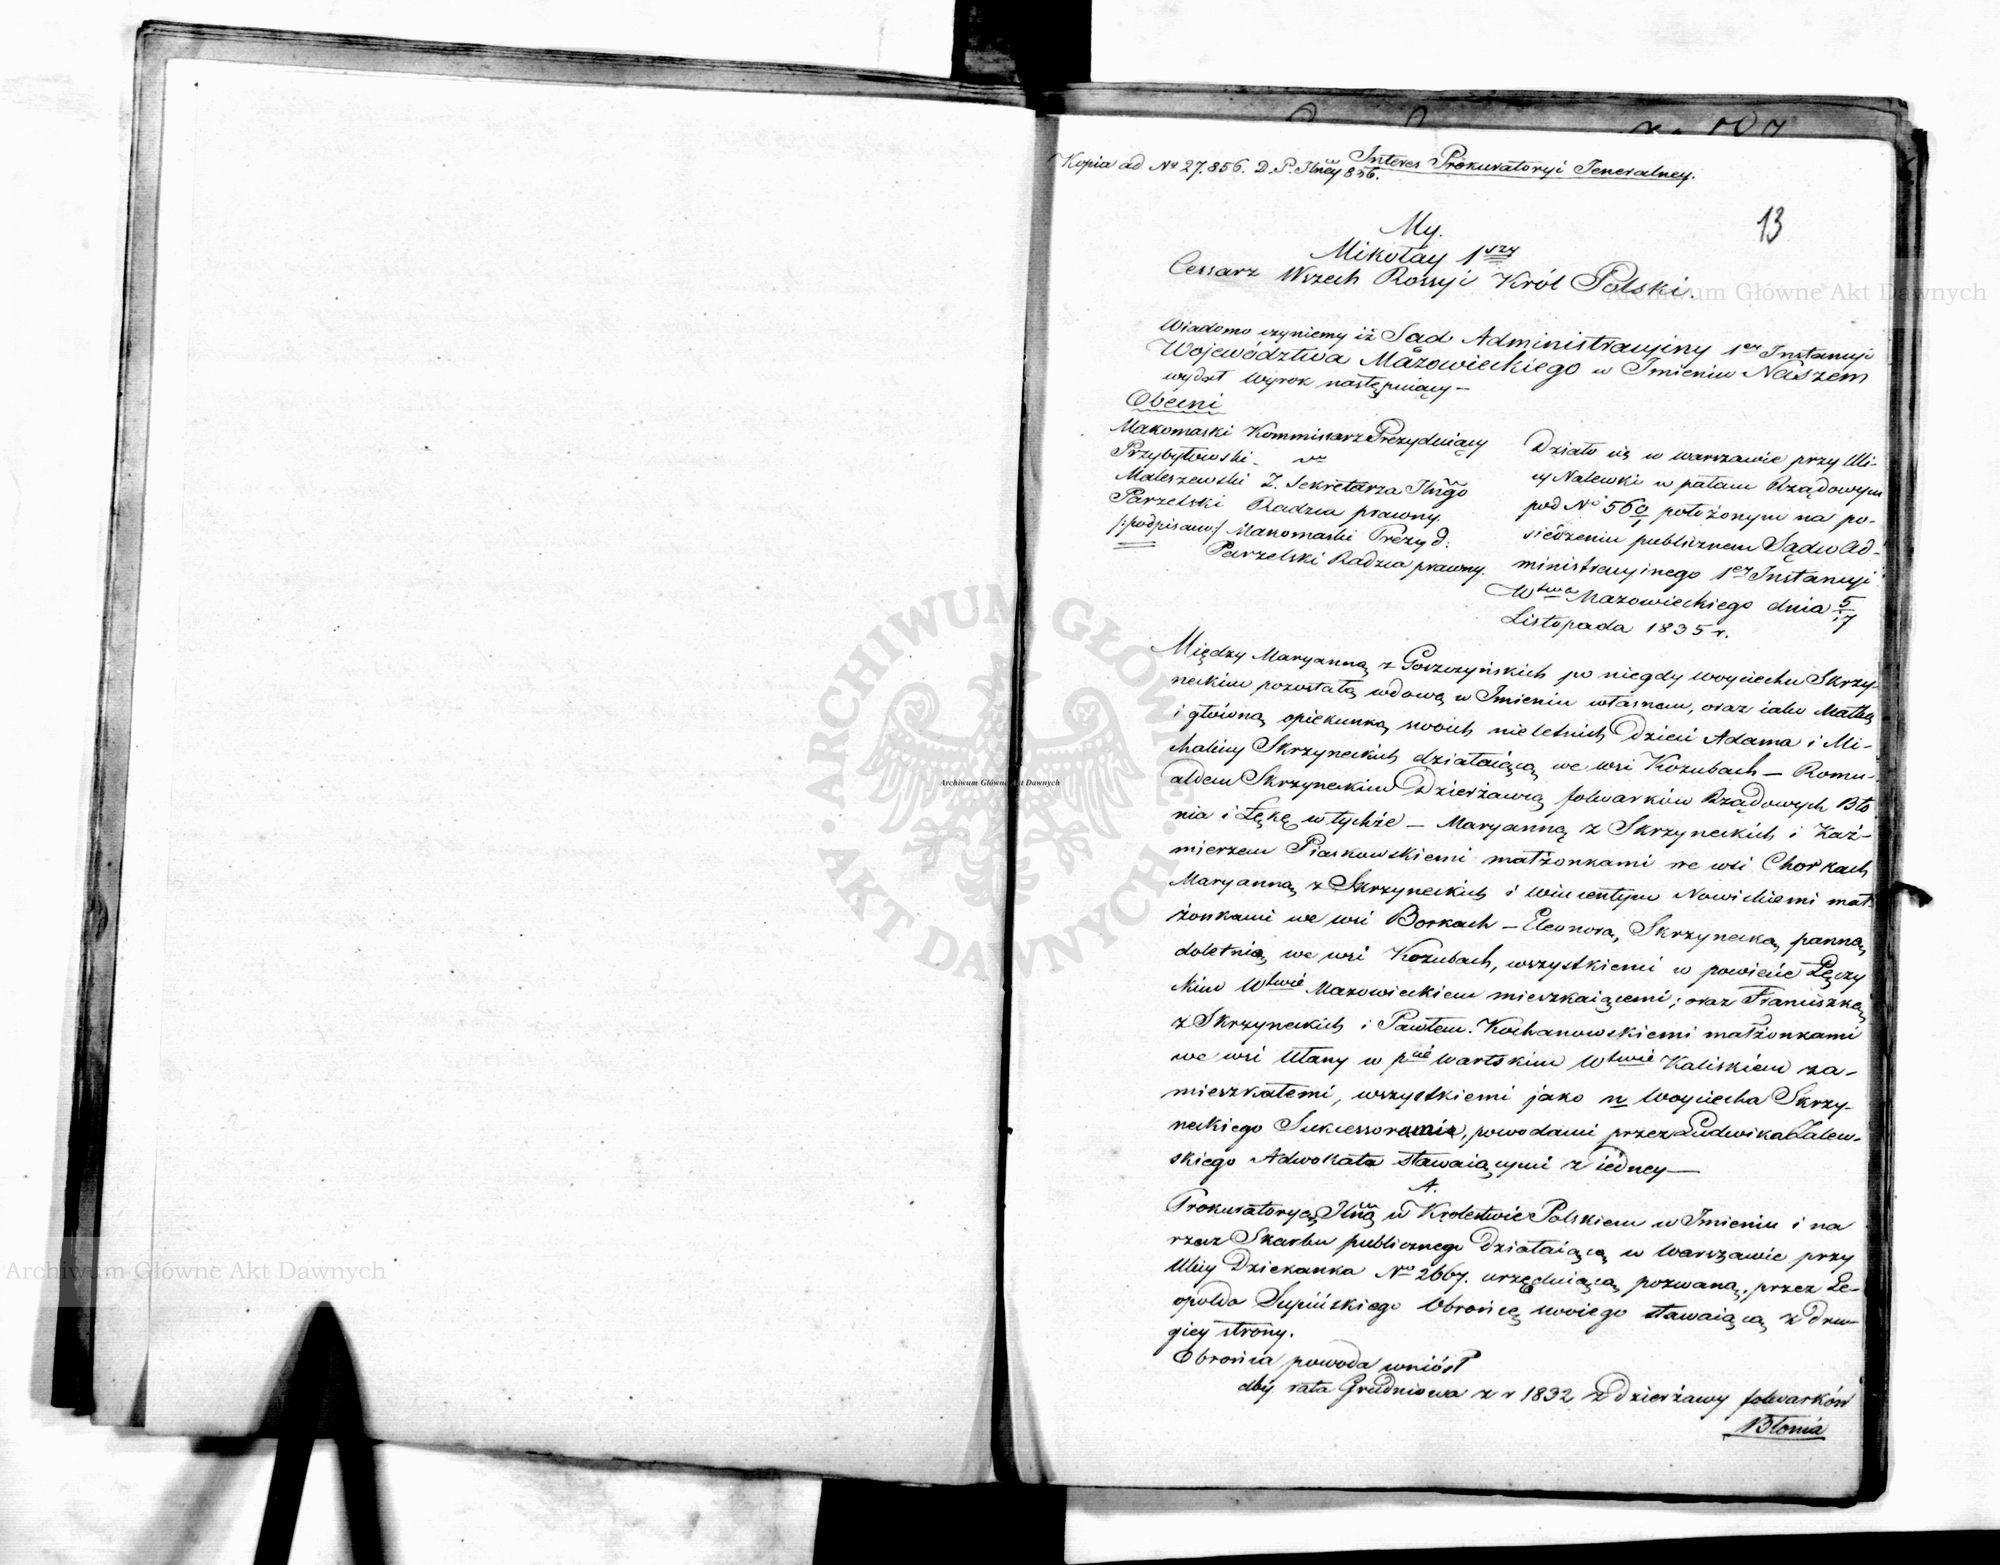 Interes Prokuratoryi Jeneralney.
Kopia ad No 27.856. D.P. Jlney 836.
13
My.
Mikołay 1szy
Cessarz Wszech Rossyi Król Polski.
Wiadomo czyniemy iż Sąd Administracyjny 1ey Instancyi
Województwa Mazowieckiego w Imieniu Naszem
wydał Wyrok następuiący —
Obecni
Makomaski Kommissarz Prezyduiący
Przybytowski
Maleszewski Z. Sekretarza Jlngo
Parzelski Radzca prawny.
/:podpisano:/ Makomaski Prezyd:
Parzelski Radzca prawny.
Działo się w Warszawie przy Uli-
cy Nalewki w pałacu Rządowym
pod No 560 położonym na po-
siedzeniu publicznem Sądu Ad-
ministracyinego 1ey Instancyi
Wtwa Mazowieckiego dnia 5/17
Listopada 1835 r.
Między Maryanną z Gorzczyńskich po niegdy Woyciechu Skrzy-
neckim pozostałą wdową w Imieniu własnem, oraz iako Matką
i główną opiekunką swoich nieletnich Dzieci Adama i Mi-
chaliny Skrzyneckich działaiącą we wsi Kozubach — Romu-
aldem Skrzyneckim Dzierżawcą folwarków Rządowych Bło
nia i Łękę w tychże — Maryanną z Skrzyneckich i Kazi-
mierzem Piaskowskiemi małżonkami we wsi Chorkach
Maryanną z Skrzyneckich i Wincentym Nowickiemi mał-
żonkami we wsi Borkach — Eleonorą Skrzynecką panną
doletnią we wsi Kozubach, wszystkiemi w powiecie Łęczy
ckim Wtwie Mazowieckiem mieszkaiącemi; oraz Franciszką
z Skrzyneckich i Pawłem Kochanowskiemi małżonkami
we wsi Ułany w pcie Wartskim Wtwie Kaliskiem za-
mieszkałemi, wszystkiemi jako n Woyciecha Skrzy-
neckiego Sukcessorami, powodami przez Ludwika Zalew-
skiego Adwokata stawaiącymi z iedney —
A.
Prokuratoryą Jlną w Królestwie Polskiem w Imieniu i na
rzecz Skarbu publicznego działaiącą w Warszawie przy
Ulicy Dziekanka No 2667. urzęduiącą pozwaną, przez Le-
opolda Supińskiego Obrońcę swoiego stawaiącą z dru-
giey strony.
Obrońca powoda wniósł
aby rata Grudniowa z r 1832 z Dzierżawy folwarków
Błonia
Archiwum Główne Akt Dawnych
Archiwum Główne Akt Dawnych
Archiwum Główne Akt Dawnych
ARCHIWUM GŁÓWNE · AKT DAWNYCH ·